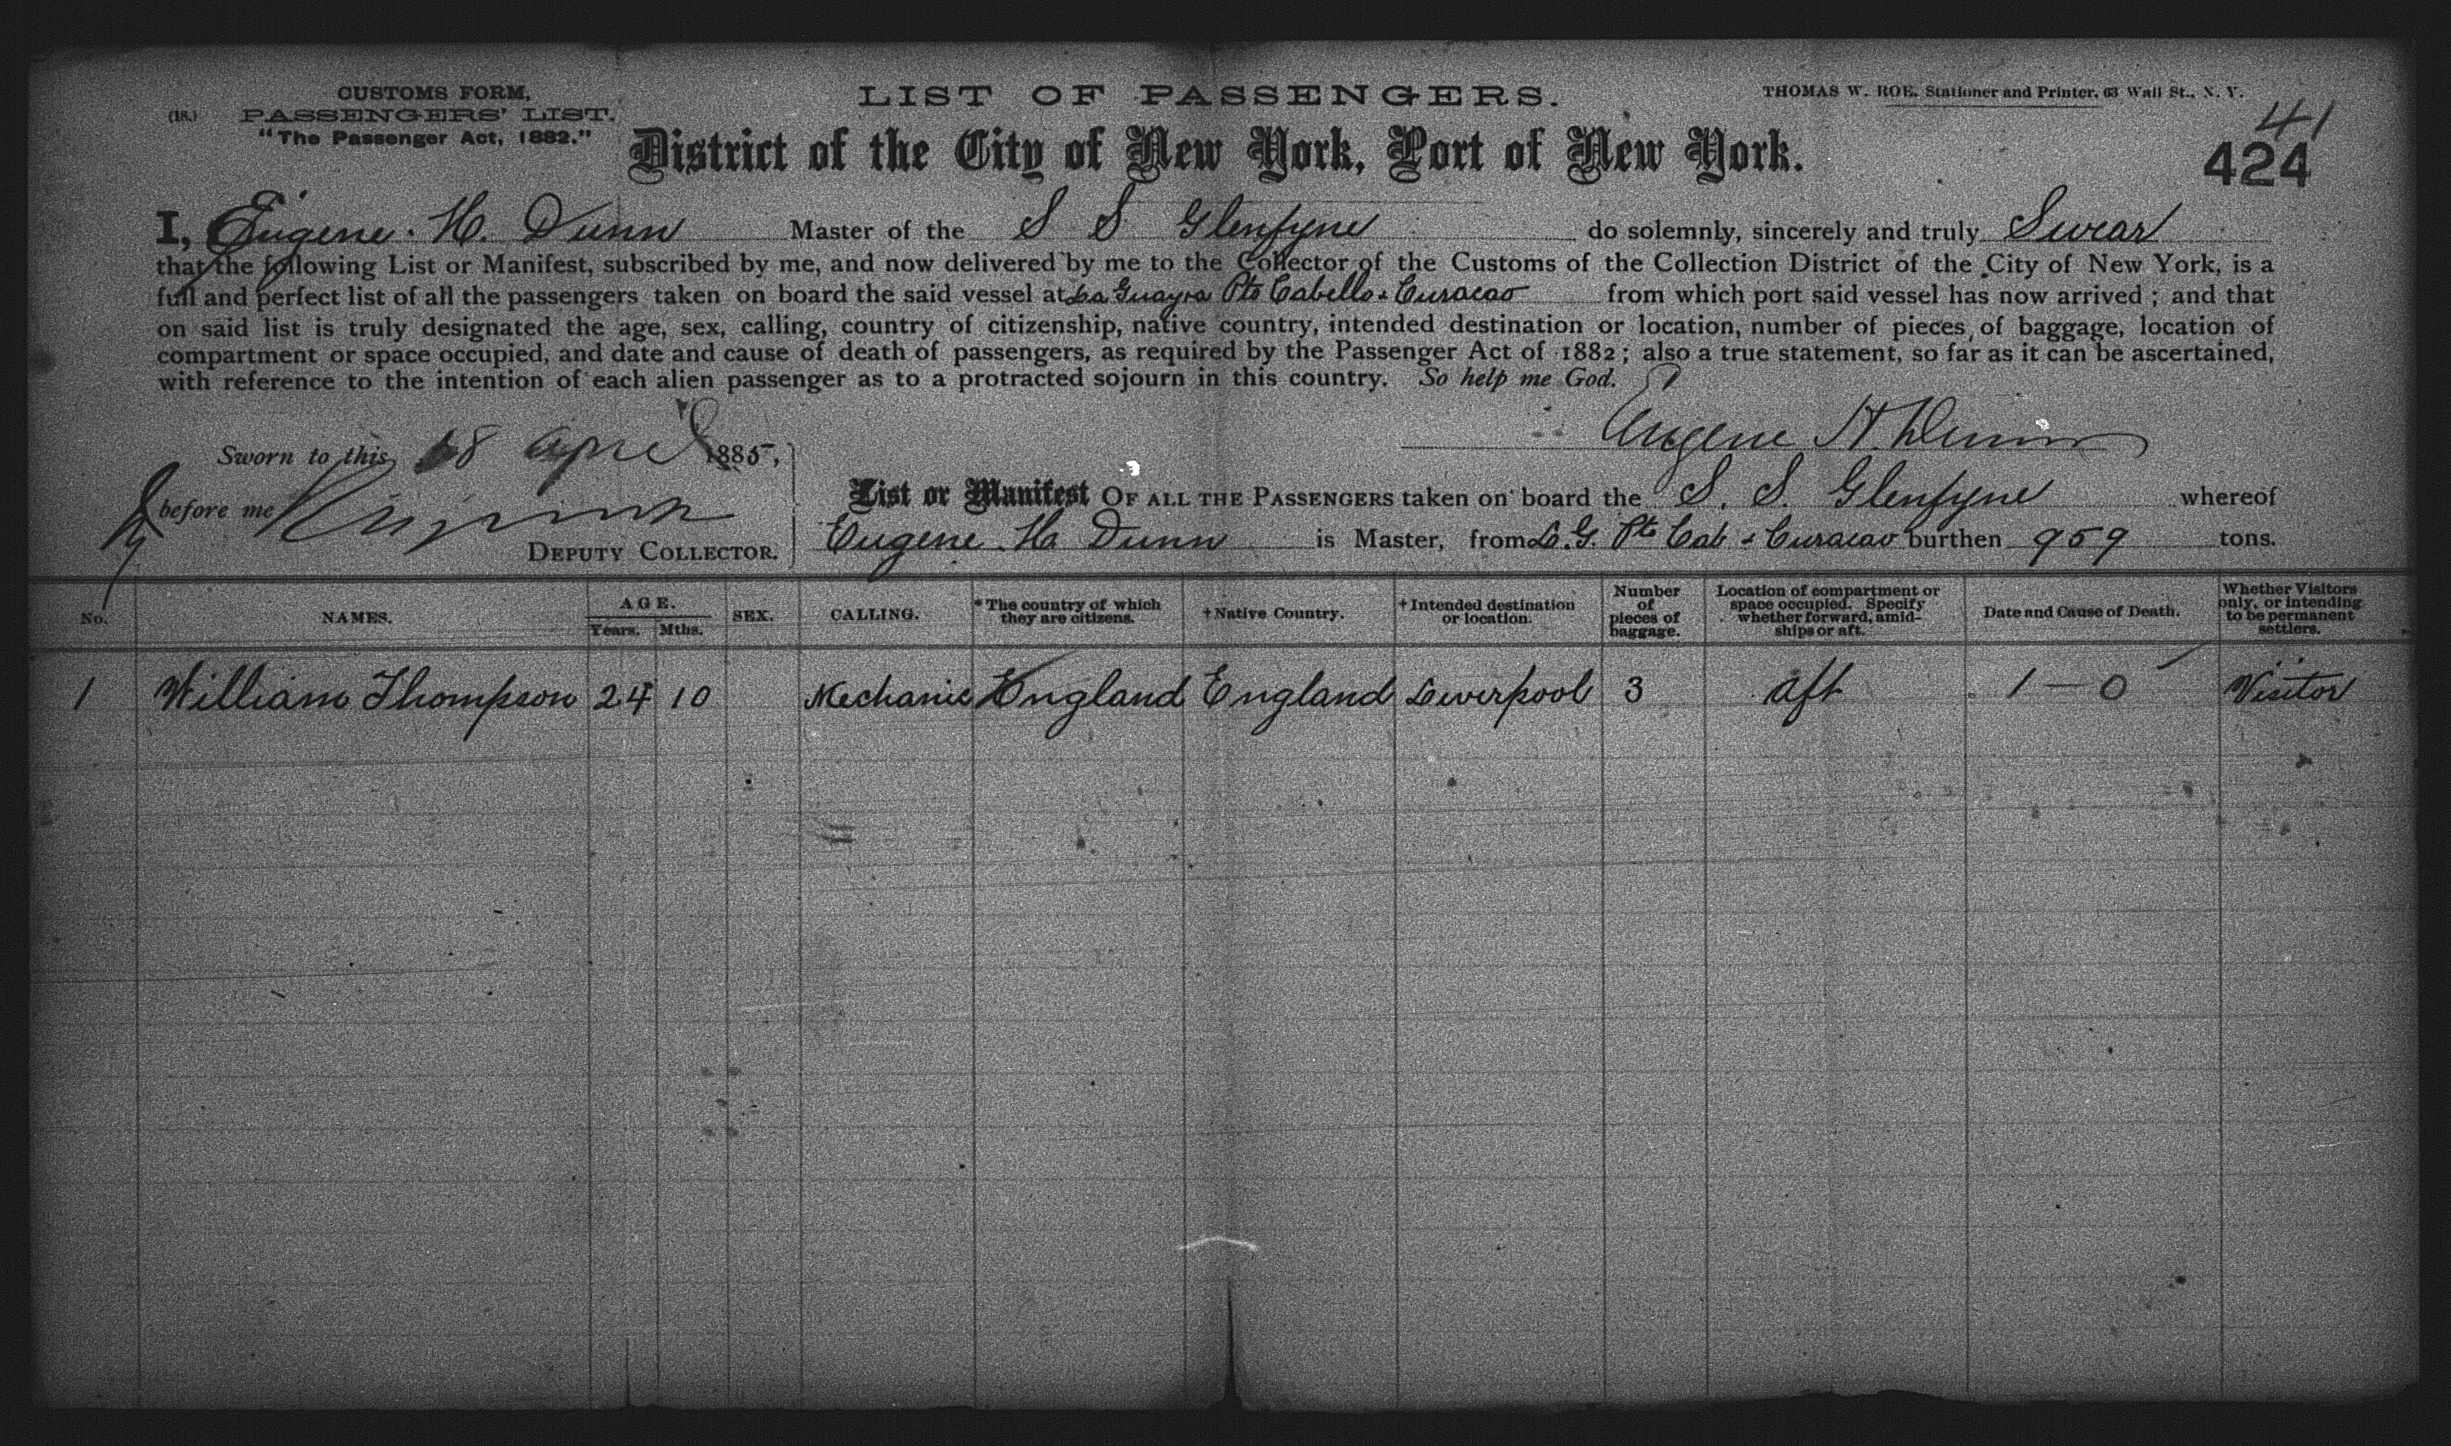 CUSTOMS FORM,
(18.) PASSENGERS' LIST.
"The Passenger Act, 1882."
LIST OF PASSENGERS.
THOMAS W. ROE, Stationer and Printer, 63 Wall St., N. Y.
41
424
District of the City of New York, Port of New York.
I, Eugene. H. Dunn Master of the S S Glenfyne do solemnly, sincerely and truly Swear
that the following List or Manifest, subscribed by me, and now delivered by me to the Collector of the Customs of the Collection District of the City of New York, is a
full and perfect list of all the passengers taken on board the said vessel at La Guayra Pto Cabello & Curacao from which port said vessel has now arrived ; and that
on said list is truly designated the age, sex, calling, country of citizenship, native country, intended destination or location, number of pieces of baggage, location of
compartment or space occupied, and date and cause of death of passengers, as required by the Passenger Act of 1882 ; also a true statement, so far as it can be ascertained,
with reference to the intention of each alien passenger as to a protracted sojourn in this country. So help me God.
Eugene H Dunn
Sworn to this 18 April 1885,
before me
DEPUTY COLLECTOR.
List or Manifest OF ALL THE PASSENGERS taken on board the S. S. Glenfyne whereof
Eugene. H. Dunn is Master, from L.G. Pto Cab & Curacao burthen 959 tons.
No. NAMES. AGE. Years. Mths. SEX. CALLING. *The country of which they are citizens. †Native Country. †Intended destination or location. Number of pieces of baggage. Location of compartment or space occupied. Specify whether forward, amidships or aft. Date and Cause of Death. Whether Visitors only, or intending to be permanent settlers.
1 William Thompson 24 10 Mechanic England England Liverpool 3 aft 1 — 0 Visitor